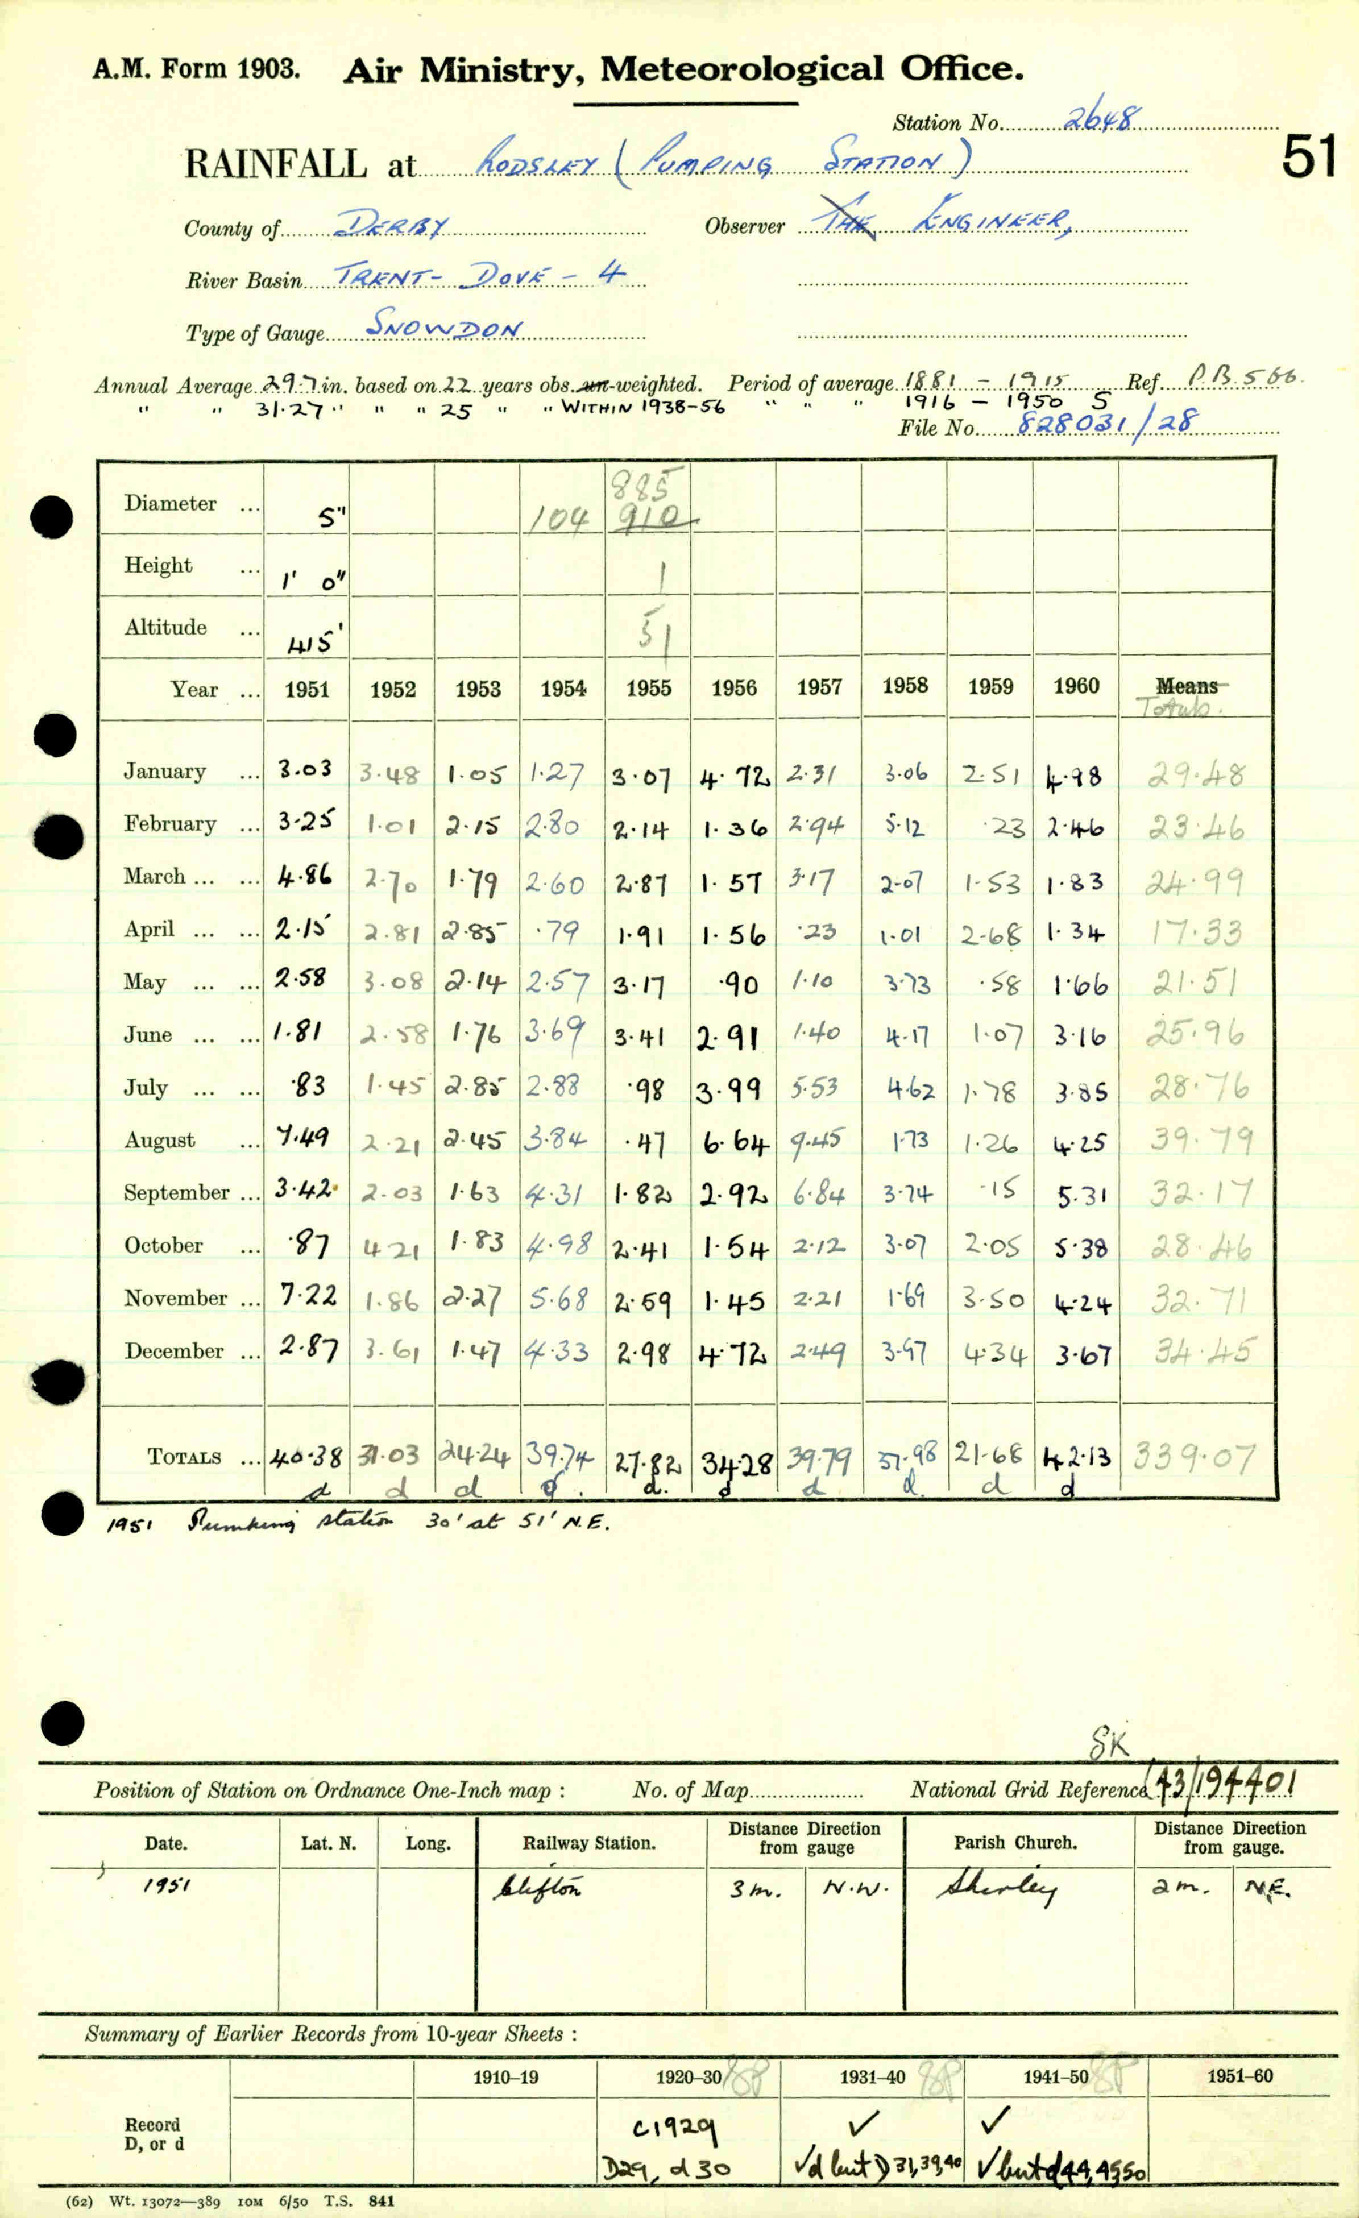 A.M. Form 1903. Air Ministry, Meteorological Office.
Station No. 2648
RAINFALL at RODSLEY (PUMPING STATION) 51
County of DERBY Observer THE ENGINEER,
River Basin TRENT - DOVE - 4
Type of Gauge SNOWDON
Annual Average 29.7 in. based on 22 years obs. un-weighted. Period of average 1881 - 1915 Ref. P.B. 566.
" " 31.27 " " " 25 " " WITHIN 1938-56 " " " 1916 - 1950 S
File No. 828031/28
885
Diameter ... 5" 104 910
Height ... 1' 0" 1
Altitude ... 415' 51
Year ... 1951 1952 1953 1954 1955 1956 1957 1958 1959 1960 Means
Totals.
January ... 3.03 3.48 1.05 1.27 3.07 4.72 2.31 3.06 2.51 4.98 29.48
February ... 3.25 1.01 2.15 2.80 2.14 1.36 2.94 5.12 .23 2.46 23.46
March ... ... 4.86 2.70 1.79 2.60 2.87 1.57 3.17 2.07 1.53 1.83 24.99
April ... ... 2.15 2.81 2.85 .79 1.91 1.56 .23 1.01 2.68 1.34 17.33
May ... ... 2.58 3.08 2.14 2.57 3.17 .90 1.10 3.73 .58 1.66 21.51
June ... ... 1.81 2.58 1.76 3.69 3.41 2.91 1.40 4.17 1.07 3.16 25.96
July ... ... .83 1.45 2.85 2.88 .98 3.99 5.53 4.62 1.78 3.85 28.76
August ... 7.49 2.21 2.45 3.84 .47 6.64 9.45 1.73 1.26 4.25 39.79
September ... 3.42 2.03 1.63 4.31 1.82 2.92 6.84 3.74 .15 5.31 32.17
October ... .87 4.21 1.83 4.98 2.41 1.54 2.12 3.07 2.05 5.38 28.46
November ... 7.22 1.86 2.27 5.68 2.59 1.45 2.21 1.69 3.50 4.24 32.71
December ... 2.87 3.61 1.47 4.33 2.98 4.72 2.49 3.97 4.34 3.67 34.45
TOTALS ... 40.38 31.03 24.24 39.74 27.82 34.28 39.79 37.98 21.68 42.13 339.07
d d d d. d. d d d. d d
1951 Pumping station 30' at 51' N.E.
SK
Position of Station on Ordnance One-Inch map : No. of Map National Grid Reference (43/194401
Date. Lat. N. Long. Railway Station. Distance from Direction gauge Parish Church. Distance from Direction gauge.
1951 Clifton 3 m. N.W. Shirley 2 m. N.E.
Summary of Earlier Records from 10-year Sheets :
1910–19 1920–30 8P 1931–40 8P 1941–50 8P 1951–60
Record D, or d c1929 ✓ ✓
D29, d30 ✓d but D 31,39,40 ✓but d 44,45,50
(62) Wt. 13072—389 10M 6/50 T.S. 841